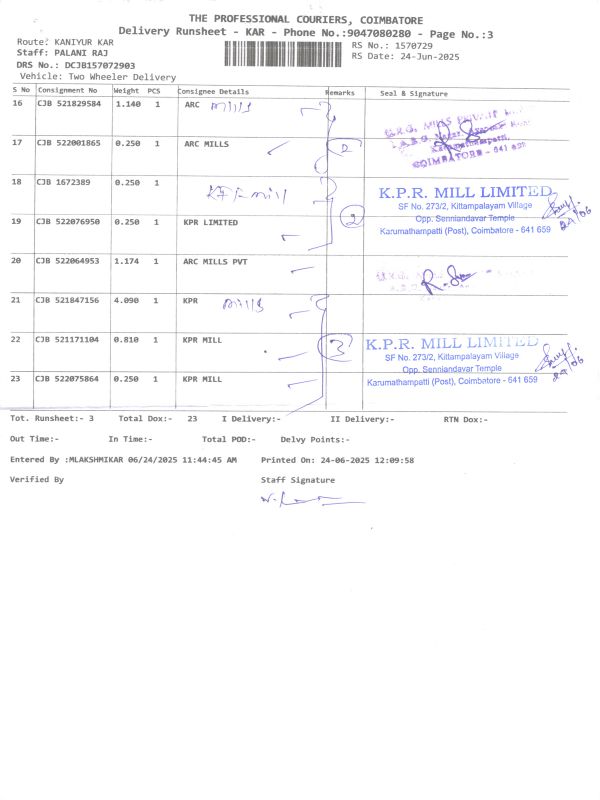 THE PROFESSIONAL COURIERS, COIMBATORE
Delivery Runsheet - KAR - Phone No.:9047080280 - Page No.:3
Route: KANIYUR KAR
RS No.: 1570729
Staff: PALANI RAJ
RS Date: 24-Jun-2025
DRS No.: DCJB157072903
Vehicle: Two Wheeler Delivery
S No Consignment No Weight PCS Consignee Details Remarks Seal & Signature
16 CJB 521829584 1.140 1 ARC mills
17 CJB 522001865 0.250 1 ARC MILLS 2
COIMBATORE - 641
18 CJB 1672389 0.250 1 KPR mill
K.P.R. MILL LIMITED
SF No. 273/2, Kittampalayam Village
Opp. Senniandavar Temple
Karumathampatti (Post), Coimbatore - 641 659
24/06
19 CJB 522076950 0.250 1 KPR LIMITED 2
20 CJB 522064953 1.174 1 ARC MILLS PVT
21 CJB 521847156 4.090 1 KPR mills
22 CJB 521171104 0.810 1 KPR MILL 3
K.P.R. MILL LIMITED
SF No. 273/2, Kittampalayam Village
Opp. Senniandavar Temple
Karumathampatti (Post), Coimbatore - 641 659
24/06
23 CJB 522075864 0.250 1 KPR MILL
Tot. Runsheet:- 3 Total Dox:- 23 I Delivery:- II Delivery:- RTN Dox:-
Out Time:- In Time:- Total POD:- Delvy Points:-
Entered By :MLAKSHMIKAR 06/24/2025 11:44:45 AM Printed On: 24-06-2025 12:09:58
Verified By Staff Signature